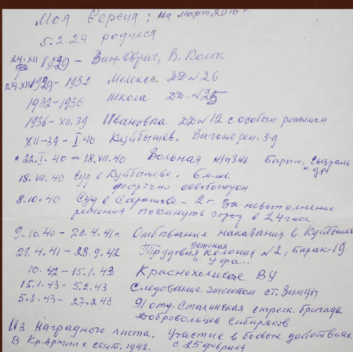 Моя версия: на март 2016г
5.2.24 родился
24.XII 1929 - Вин. Овраг, В. Колок
24.XII 1929 - 1932 Мелекес ДД №26
1932-1936 школа ДД №25
1936-XII.39 Ивановка ДД №12 с особым режимом
XII-39 - I.40 Куйбышев. Вагонорем. з-д
22.I.40 - 18.VII.40 Вольная жизнь Барыш, Сызрань и др
18.VII.40 Суд в Куйбышеве. 6 мес.
досрочно освобожден
8.10.40 Суд в Саратове - 2 г. За невыполнение
решения покинуть город в 24 часа.
9.10.40 - 20.4.41г Отбывание наказания в Куйбышеве
21.4.41 - 28.9.42 Трудовая детская колония №2, барак-19
г. Уфа.
10.42 - 15.1.43 Краснохолмское ВУ
15.1.43 - 5.2.43 Следование эшелоном ст.
5.2.43 - 27.2.43 91 отд. Сталинская стрелк. бригада
Добровольцев Сибиряков
Из Наградного листа. Участие в боевых действиях
В Кр. Армии с сент. 1942. с 25 февраля